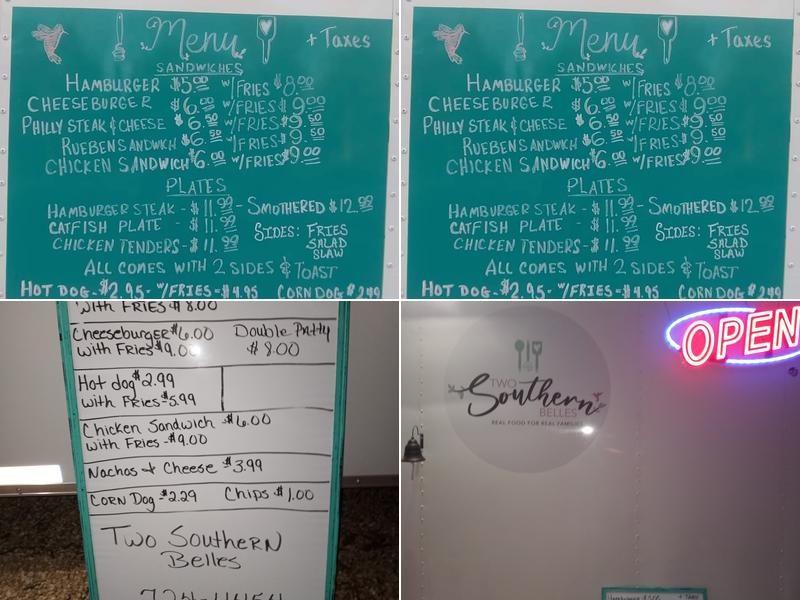 Menu
+ Taxes
SANDWICHES
HAMBURGER $5.00 w/FRIES $8.00
CHEESEBURGER $6.00 w/FRIES $9.00
PHILLY STEAK & CHEESE $6.50 w/FRIES $9.50
RUEBEN SANDWICH $6.50 w/FRIES $9.50
CHICKEN SANDWICH $6.00 w/FRIES $9.00
PLATES
HAMBURGER STEAK - $11.99 - SMOTHERED $12.99
CATFISH PLATE - $11.99
CHICKEN TENDERS - $11.99
SIDES: FRIES
SALAD
SLAW
ALL COMES WITH 2 SIDES & TOAST
HOT DOG - $2.95 - W/FRIES = $4.95 CORN DOG $2.49
Menu
+ Taxes
SANDWICHES
HAMBURGER $5.00 w/FRIES $8.00
CHEESEBURGER $6.00 w/FRIES $9.00
PHILLY STEAK & CHEESE $6.50 w/FRIES $9.50
RUEBEN SANDWICH $6.50 w/FRIES $9.50
CHICKEN SANDWICH $6.00 w/FRIES $9.00
PLATES
HAMBURGER STEAK - $11.99 - SMOTHERED $12.99
CATFISH PLATE - $11.99
CHICKEN TENDERS - $11.99
SIDES: FRIES
SALAD
SLAW
ALL COMES WITH 2 SIDES & TOAST
HOT DOG - $2.95 - W/FRIES = $4.95 CORN DOG $2.49
with Fries $8.00
Cheeseburger $6.00 Double Patty
with Fries $9.00 $8.00
Hot dog $2.99
with Fries - $5.99
Chicken Sandwich - $6.00
with Fries - $9.00
Nachos & Cheese - $3.99
Corn Dog - $2.29 Chips $1.00
Two Southern
Belles
OPEN
TWO
Southern
BELLES
REAL FOOD FOR REAL FAMILIES
+ Taxes